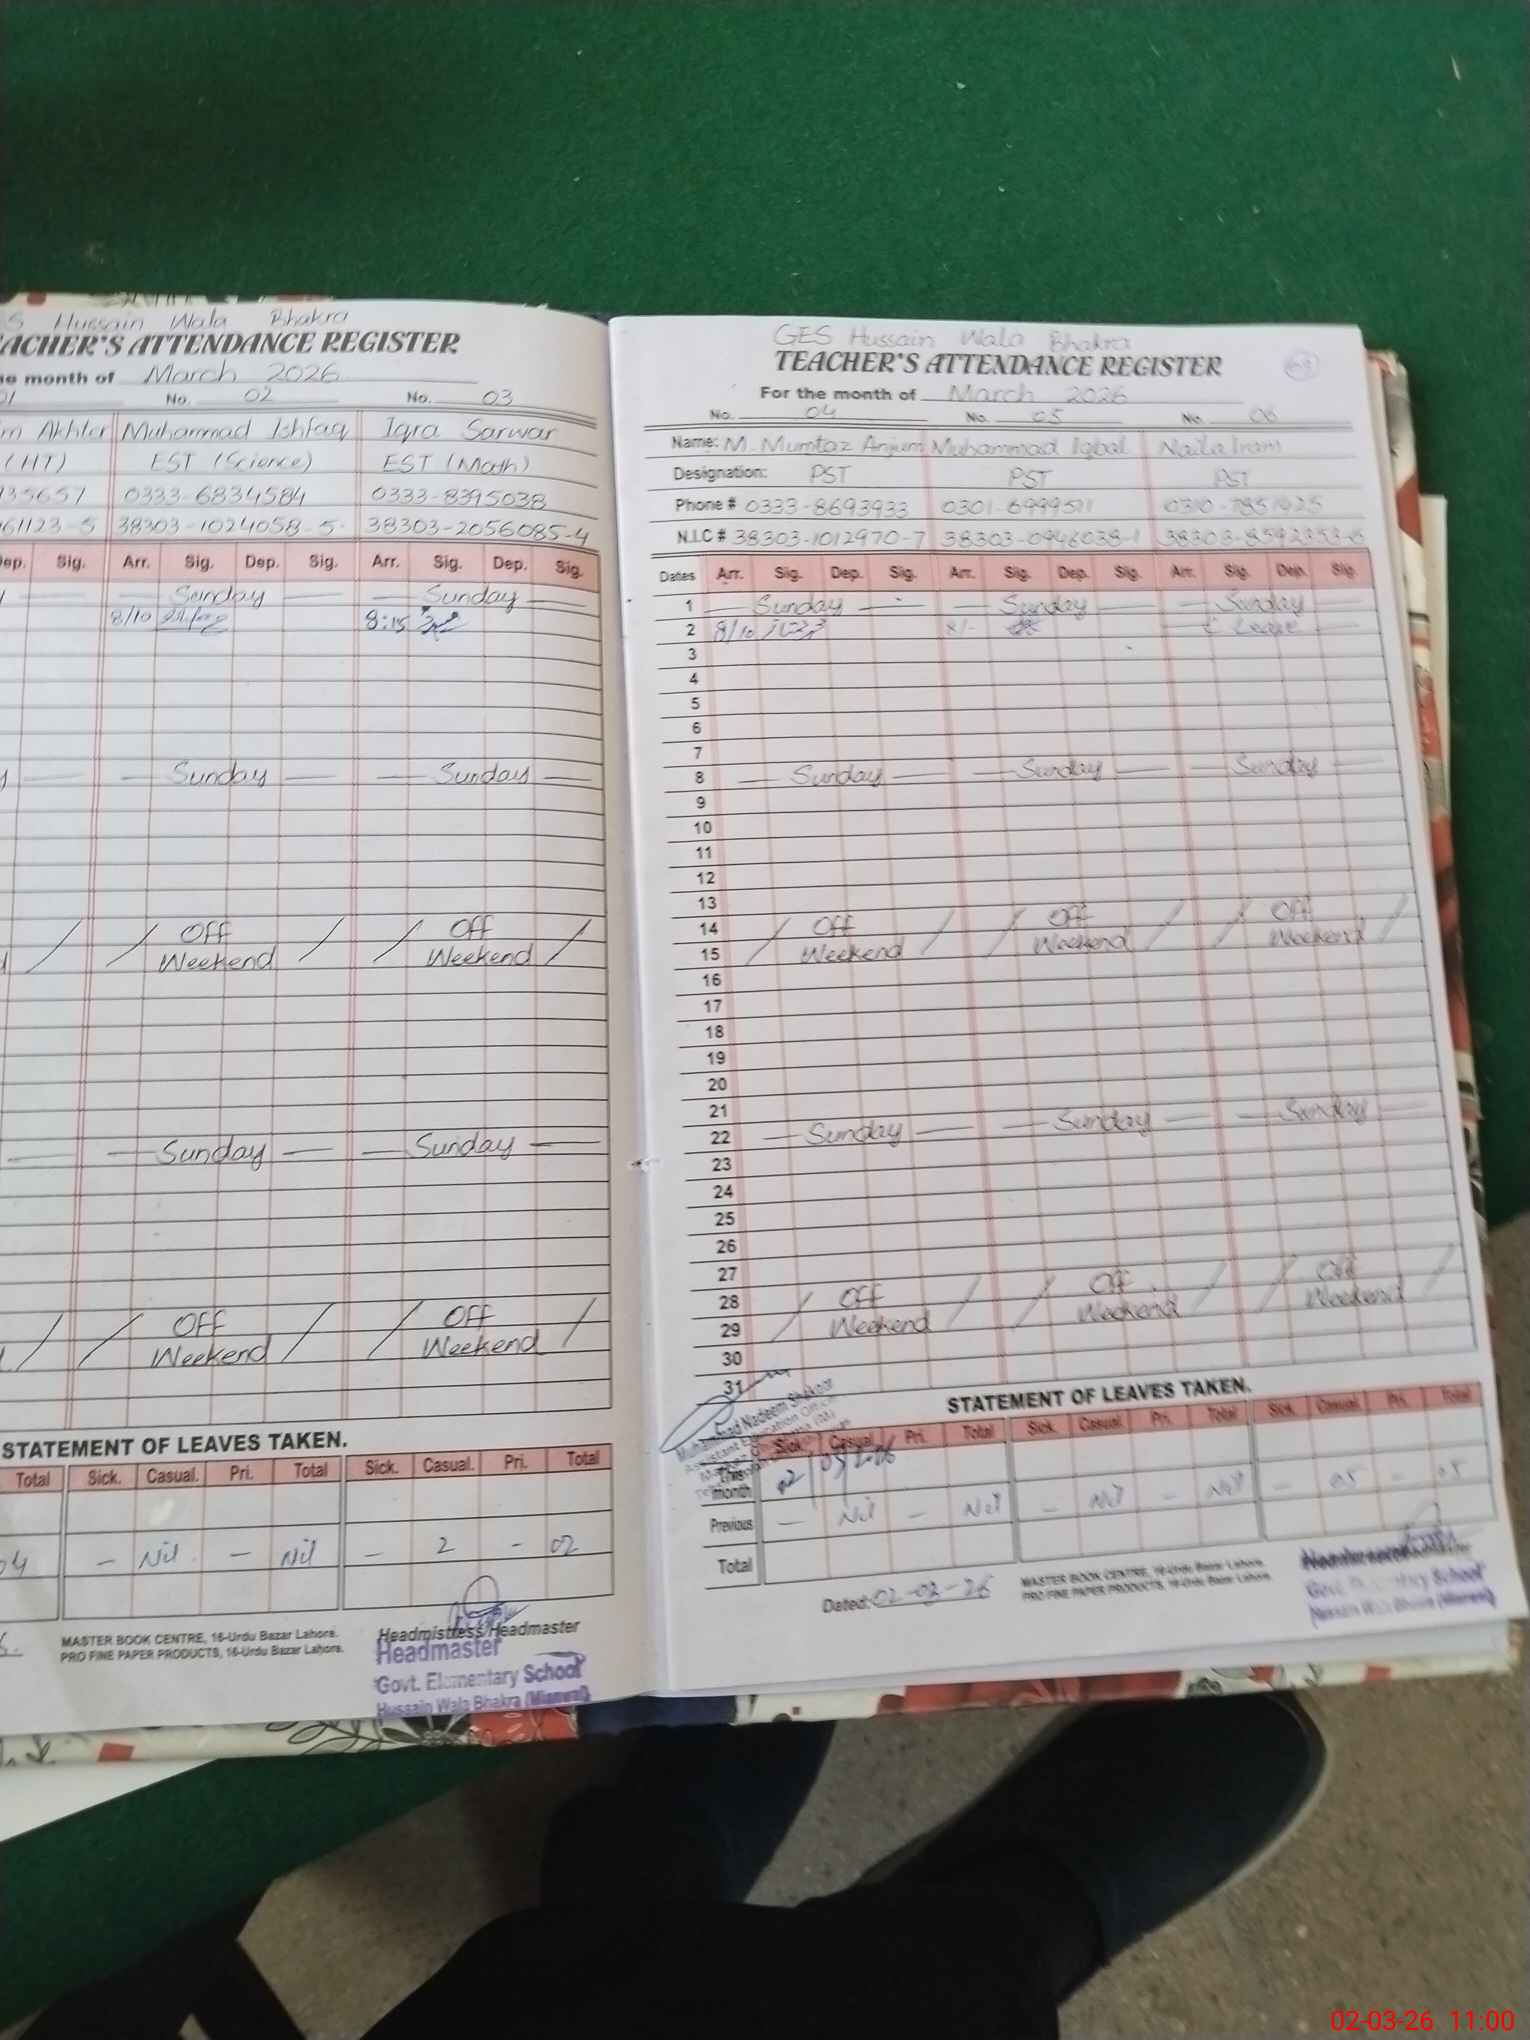 Hussain Wala Bhakra
TEACHER'S ATTENDANCE REGISTER
the month of March 2026
No. 02 No. 03
Akhtar Muhammad Ishfaq Iqra Sarwar
(HT) EST (Science) EST (Math)
35657 0333-6834584 0333-8395038
61123-5 38303-1024058-5 38303-2056085-4
Dep. Sig. Arr. Sig. Dep. Sig. Arr. Sig. Dep. Sig.
— Sunday — — Sunday —
8/10 8:15
— Sunday — — Sunday —
/ / Off / / Off /
Weekend Weekend
— Sunday — — Sunday —
/ / Off / / Off /
Weekend Weekend
STATEMENT OF LEAVES TAKEN.
Total Sick. Casual. Pri. Total Sick. Casual. Pri. Total
04 - Nil - Nil - 2 - 02
MASTER BOOK CENTRE, 16-Urdu Bazar Lahore.
PRO FINE PAPER PRODUCTS, 16-Urdu Bazar Lahore.
Headmistress/Headmaster
Headmaster
Govt. Elementary School
Hussain Wala Bhakra (Mianwali)
GES Hussain Wala Bhakra
TEACHER'S ATTENDANCE REGISTER
For the month of March 2026
No. 04 No. 05 No. 06
Name: M. Mumtaz Anjum Muhammad Iqbal Naila Iram
Designation: PST PST PST
Phone # 0333-8693933 0301-6999511 0310-7851925
N.I.C # 38303-1012970-7 38303-0946038-1
Dates Arr. Sig. Dep. Sig. Arr. Sig. Dep. Sig. Arr. Sig. Dep. Sig.
1 — Sunday — — Sunday — — Sunday —
2 8/10 ممتاز 8/- — C Leave —
3
4
5
6
7
8 — Sunday — — Sunday — — Sunday —
9
10
11
12
13
14 / Off / / Off / / Off /
15 Weekend Weekend Weekend
16
17
18
19
20
21
22 — Sunday — — Sunday — — Sunday —
23
24
25
26
27
28 / Off / / Off / / Off /
29 Weekend Weekend Weekend
30
31
Muhammad Nadeem Shakoor
Assistant Education Officer
STATEMENT OF LEAVES TAKEN.
Sick. Casual. Pri. Total Sick. Casual. Pri. Total Sick. Casual. Pri. Total
This month
Previous - Nil - Nil - Nil - Nil - 05 - 05
Total
Dated: 02-03-26
MASTER BOOK CENTRE, 16-Urdu Bazar Lahore.
PRO FINE PAPER PRODUCTS, 16-Urdu Bazar Lahore.
Govt. Elementary School
Hussain Wala Bhakra (Mianwali)
02-03-26 11:00